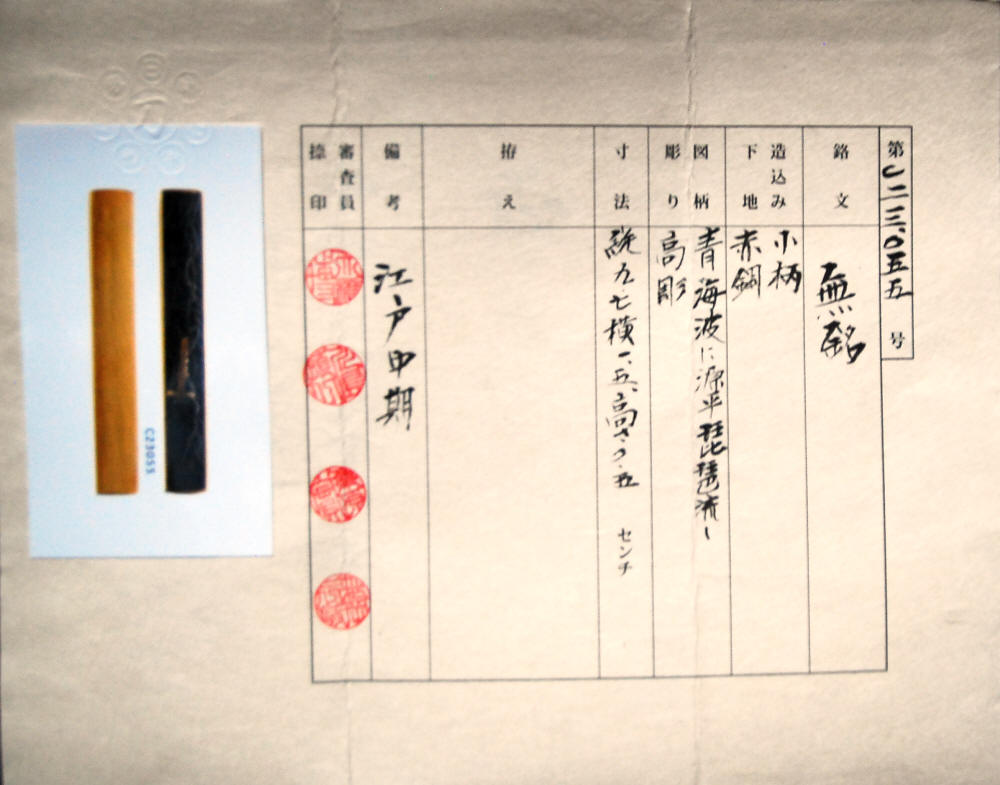 第C二三〇五五号
銘文
無銘
造込み
下地
小柄
赤銅
図柄
彫り
青海波に源平琵琶流し
高彫
寸法
縦九.七横一.五、高さ〇.五 センチ
拵え
備考
江戸中期
審査員
捺印
C23055